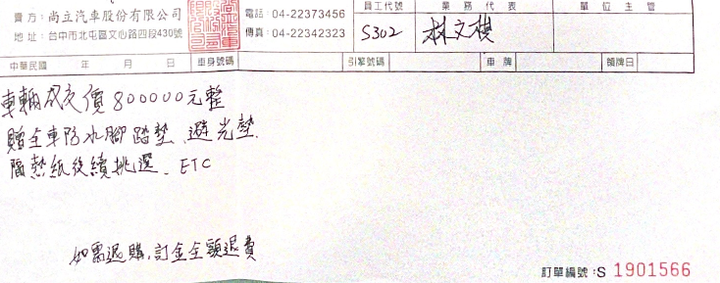 賣方：尚立汽車股份有限公司 電話：04-22373456 員工代號 業務代表 單位主管
地址：台中市北屯區文心路四段430號 傳真：04-22342323 S302 林文棱
中華民國 年 月 日 車身號碼 引擎號碼 車牌 領牌日
車輛成交價800000元整
贈全車防水腳踏墊、避光墊
隔熱紙後續挑選、ETC
如需退購，訂金全額退費
訂單編號：S 1901566